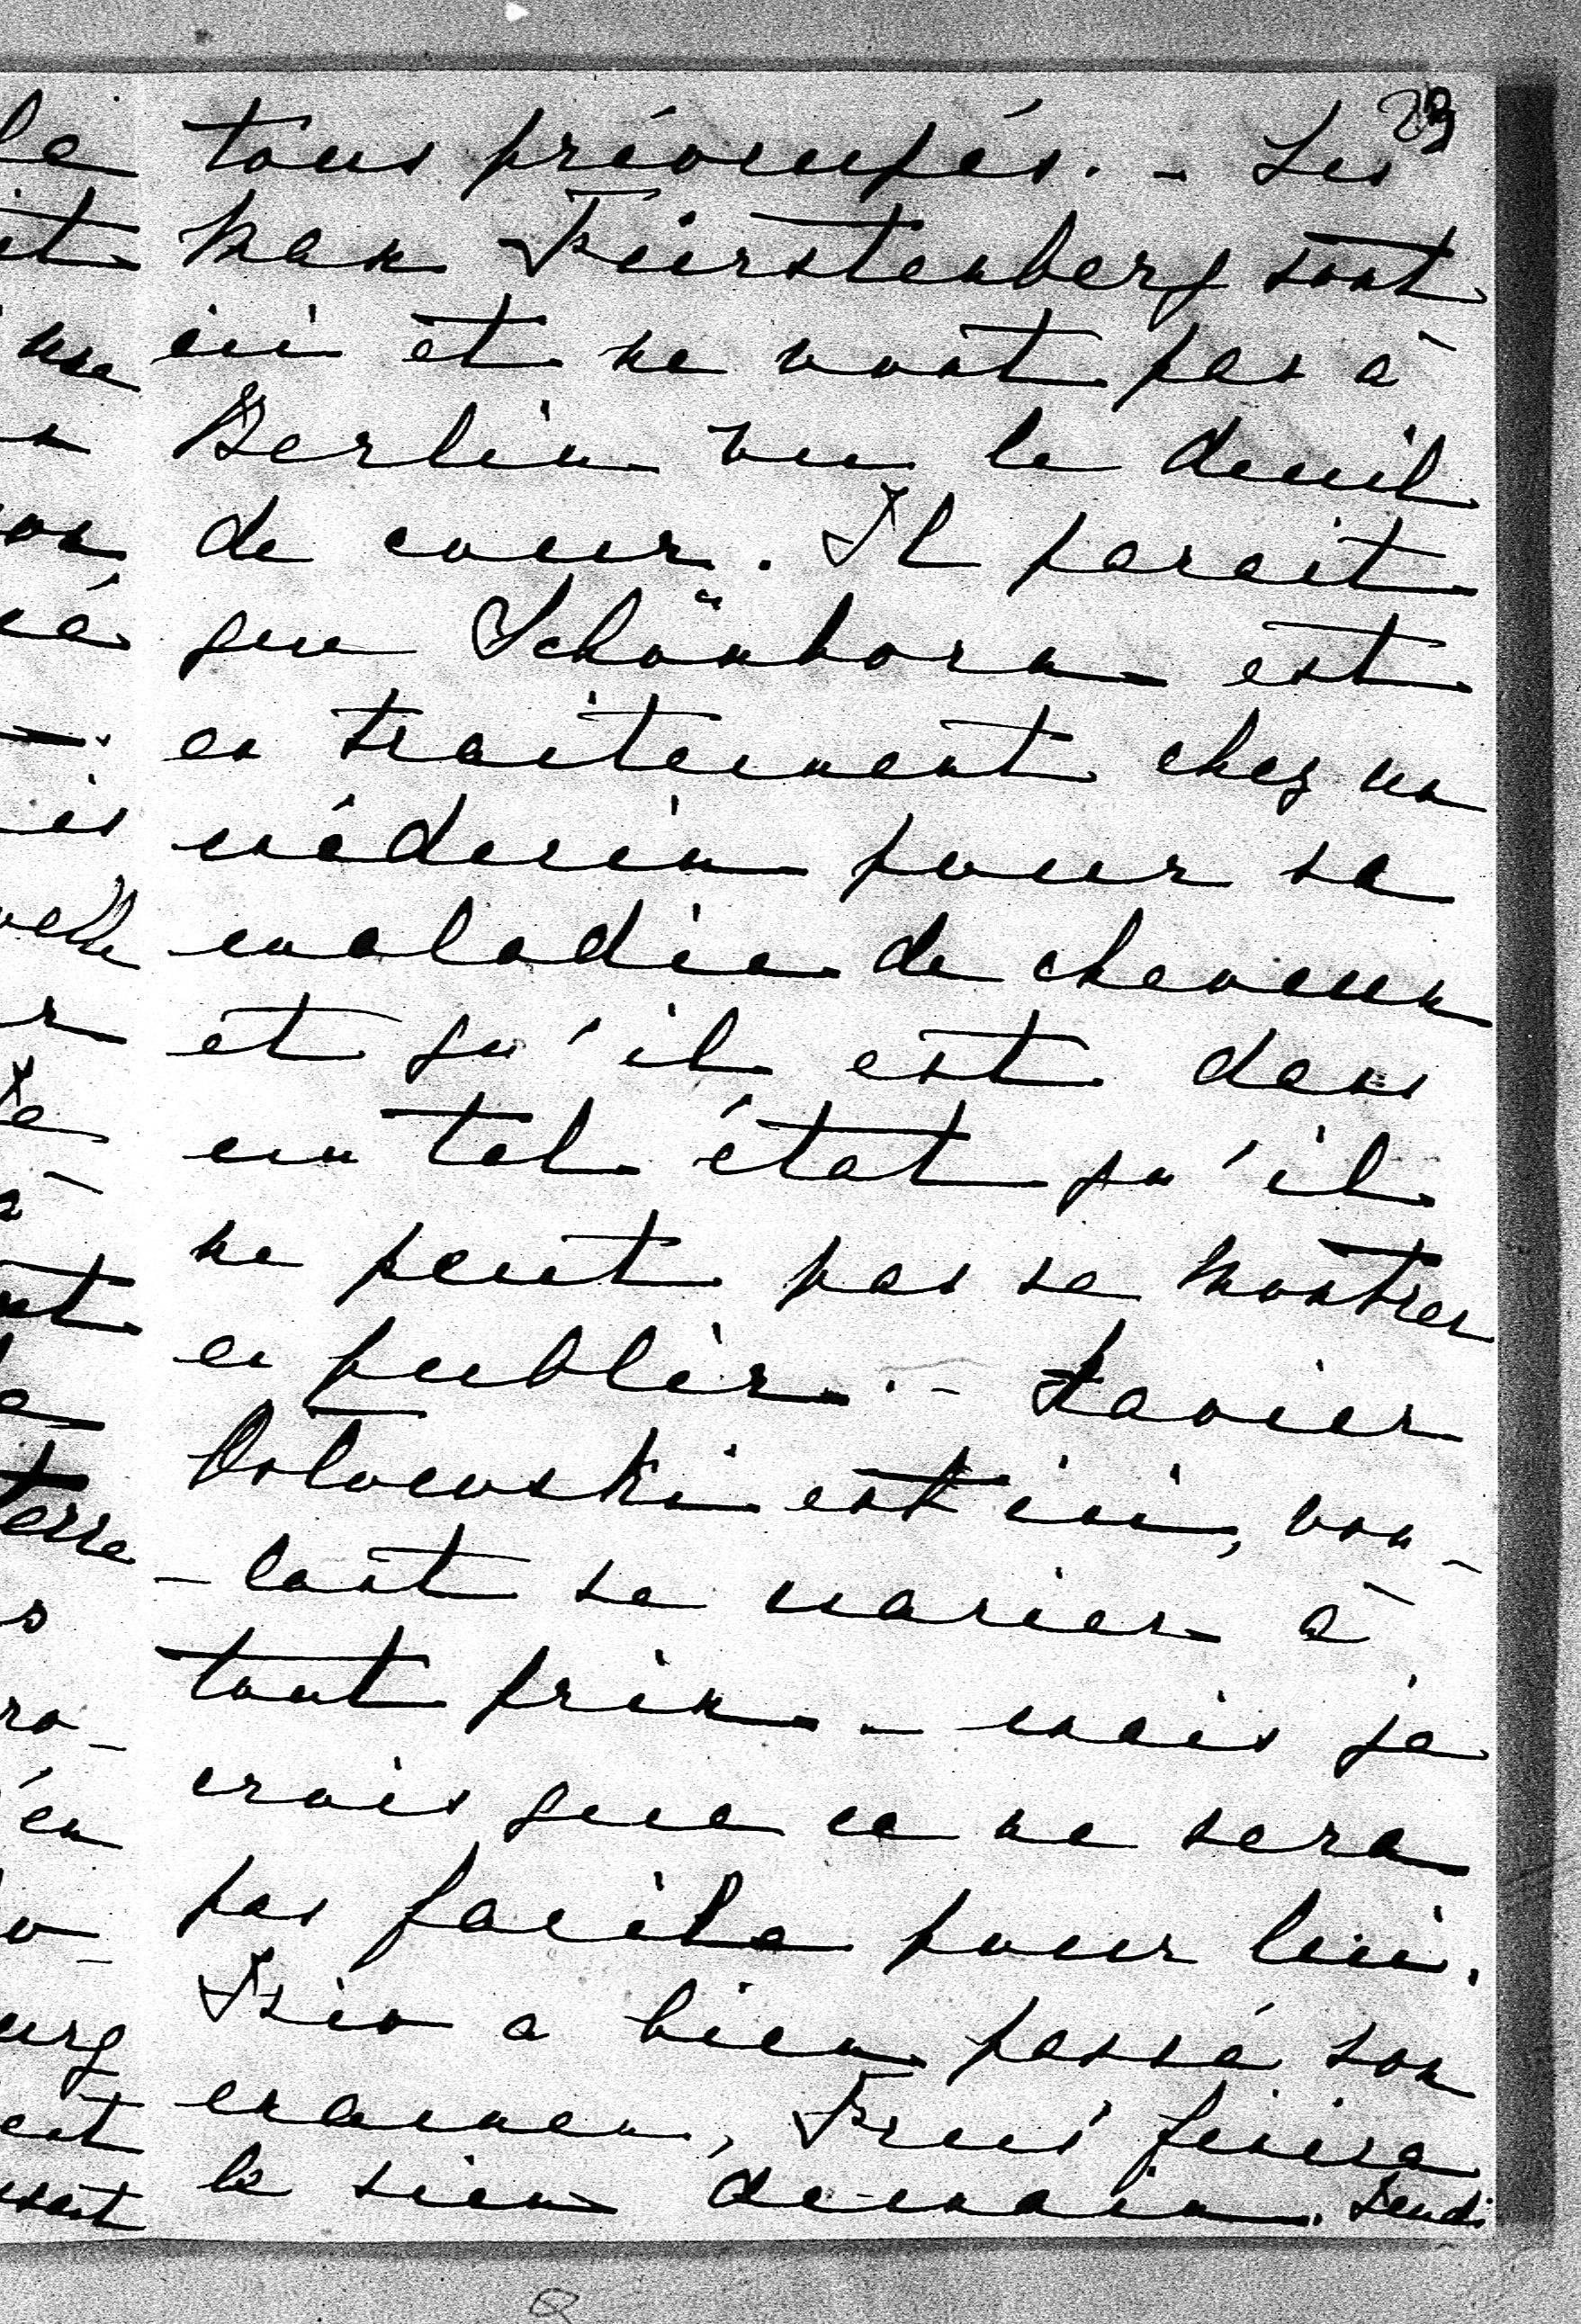 23
tous préoccupés. - Les
Max Fürstenberg sont
ici et ne vont pas à
Berlin vu le deuil
de cour. Il parait
que Schönborn est
en traitement chez un
médecin pour sa
maladie de cheveux
et qu'il est dans
un tel état qu'il
ne peut pas se montrer
en public. - Xavier
Orlowski est ici, vou-
-lant se marier à
tout prix - mais je
crois que ce ne sera
pas facile pour lui.
a bien passé son
examen, finira
le sien demain. Lundi